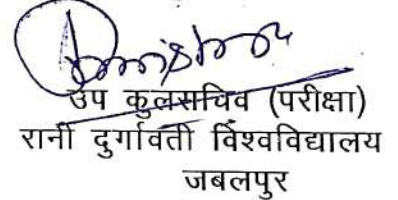 उप कुलसचिव (परीक्षा)
रानी दुर्गावती विश्वविद्यालय
जबलपुर